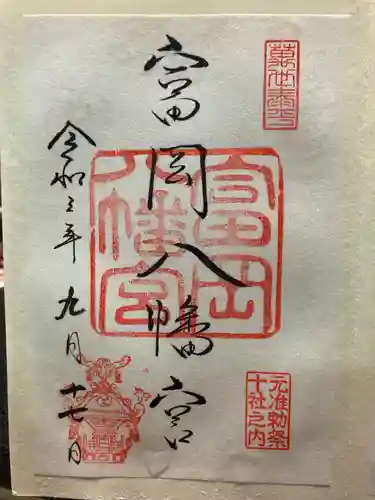 萬世泰平
富岡八幡宮
富岡八幡宮
元准勅祭
十社之内
令和三年
九月
十七日